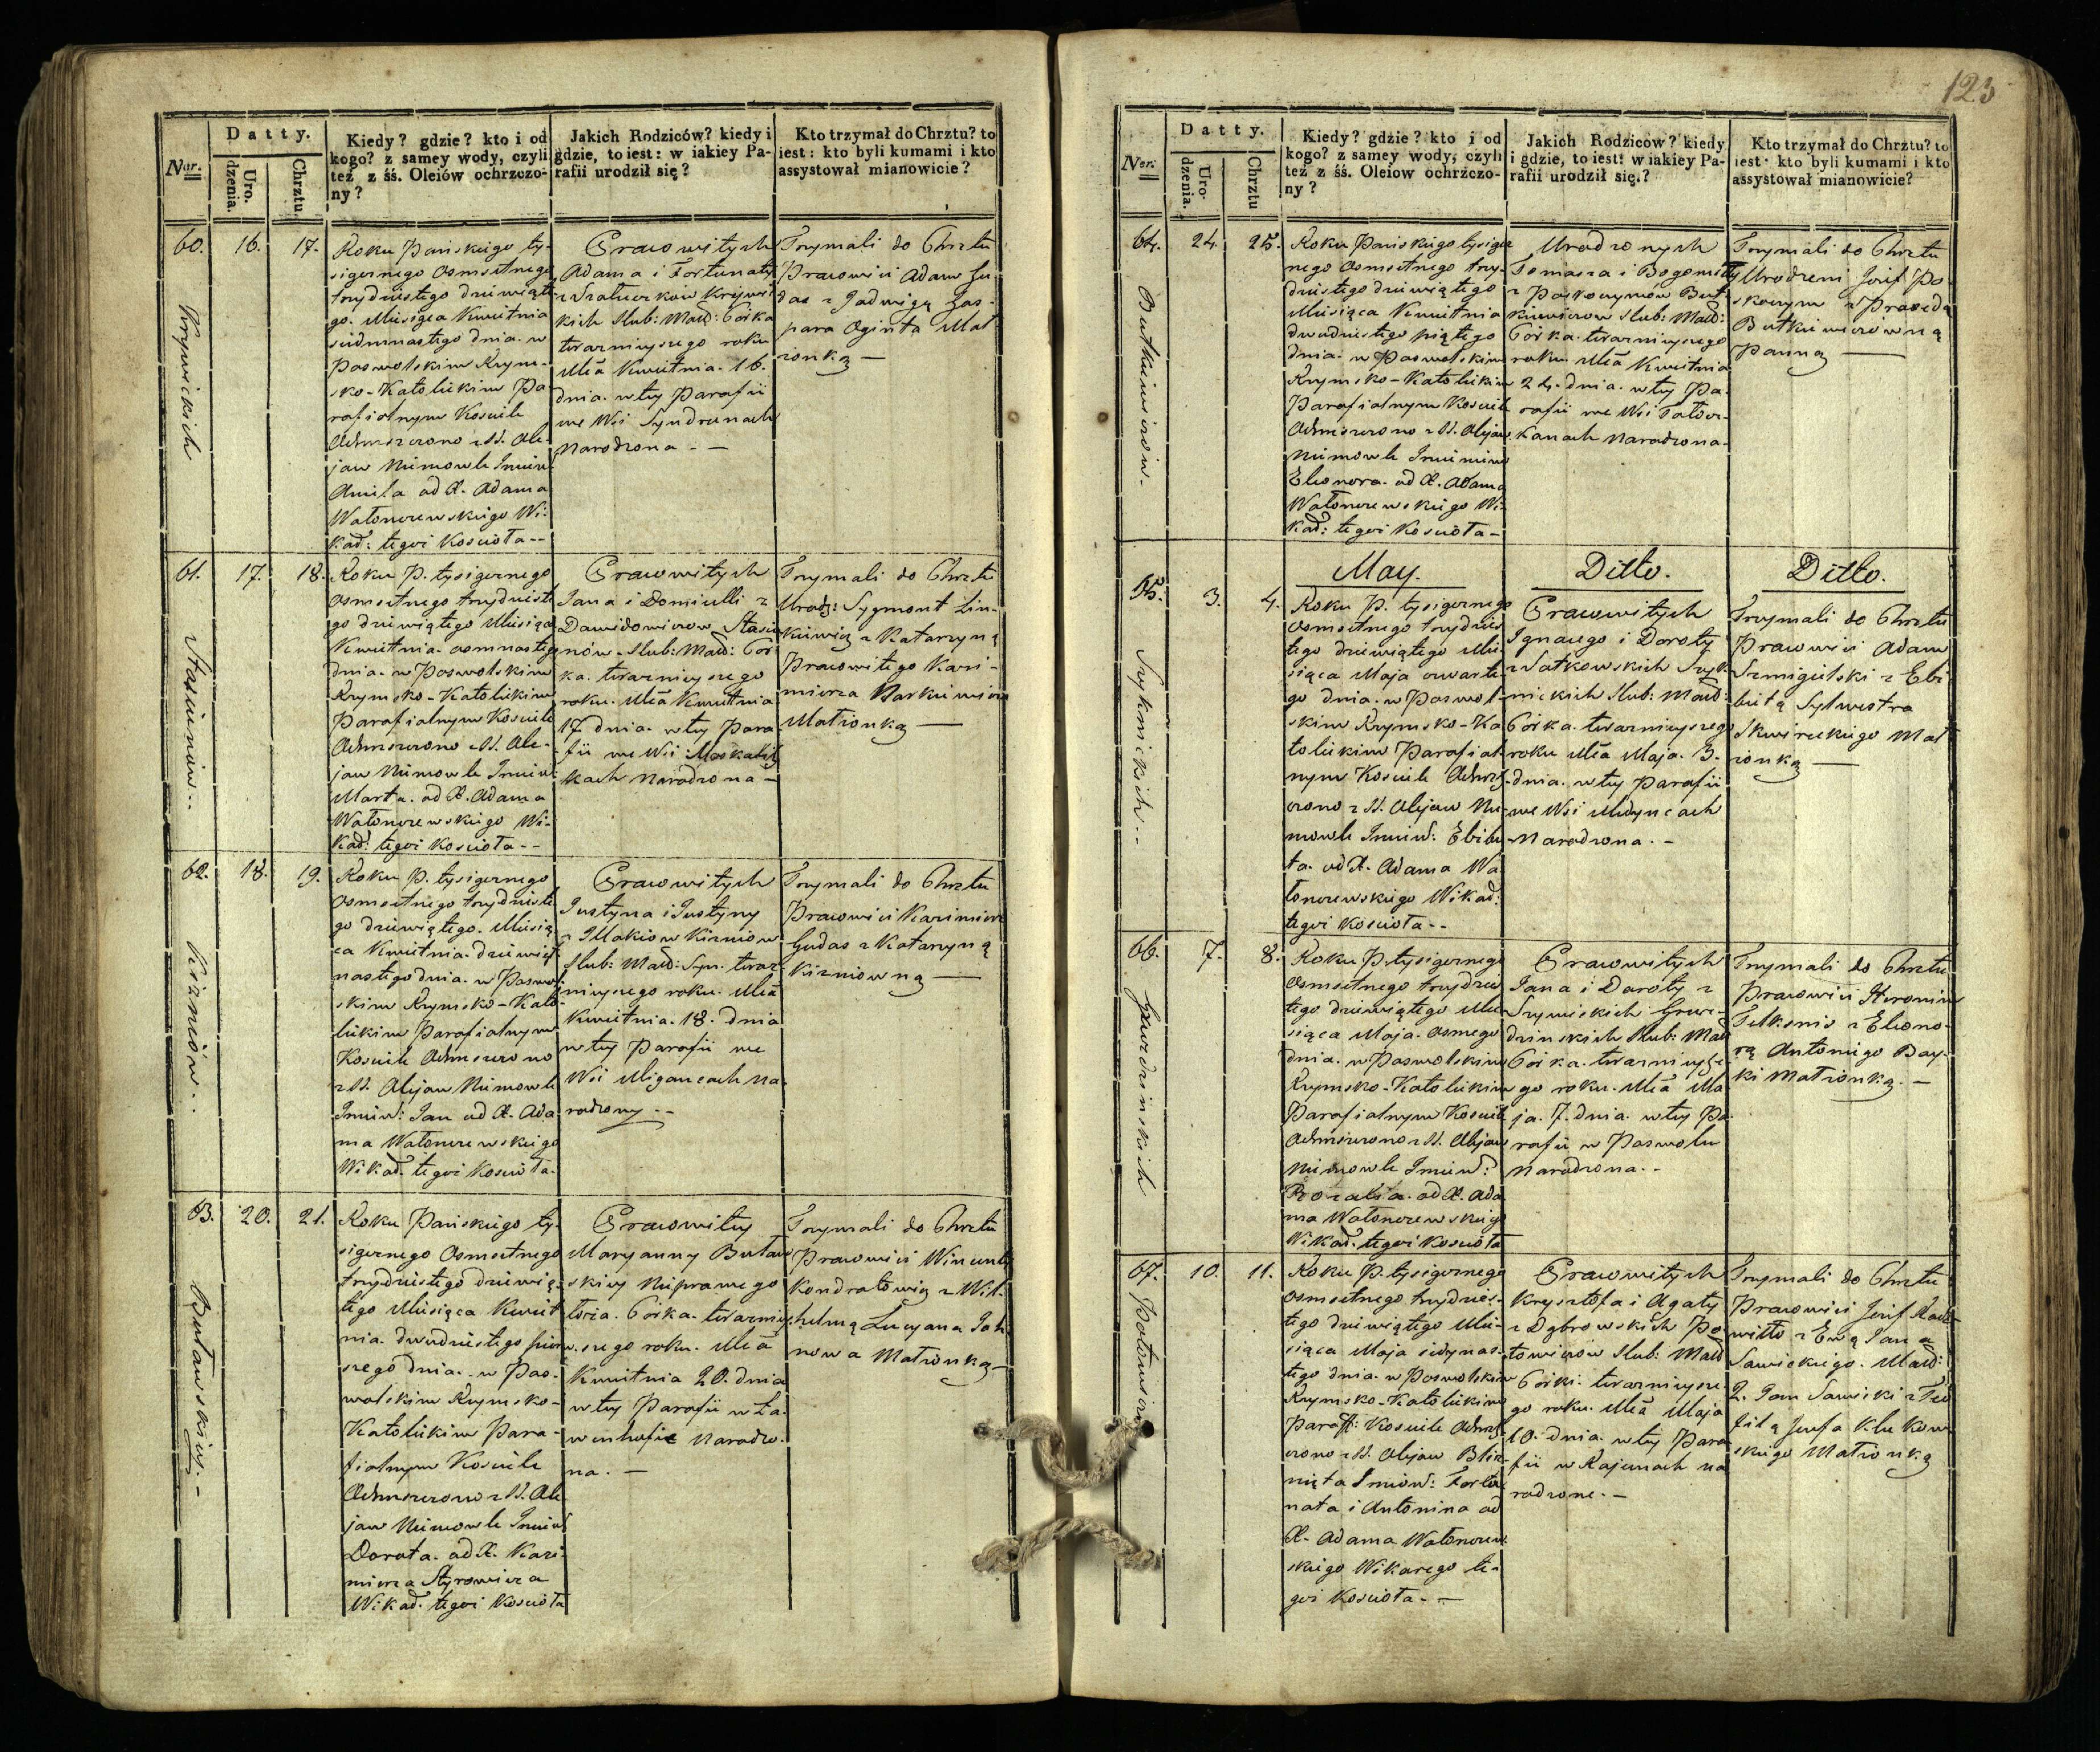 Datty.
Ner.
Uro.
dzenia.
Chrztu.
Kiedy? gdzie? kto i od
kogo? z samey wody, czyli
też z śś. Oleiów ochrzczo-
ny?
Jakich Rodziców? kiedy i
gdzie, to iest: w iakiey Pa-
rafii urodził się?
Kto trzymał do Chrztu? to
iest: kto byli kumami i kto
assystował mianowicie?
60. 16. 17.
Krzywickich
Roku Pańskiego ty-
siącznego Osmsetnego
trzydziestego dziewiąte-
go. Miesiąca Kwietnia
siedmnastego dnia. w
Poswolskim Rzym-
sko-Katolickim Pa
rafialnym Kosciele
Ochrzczono z SS. Ole-
jow Niemowle Imien:
Aniela od X. Adama
Wałonczewskiego Wi-
kad: tegoż Kościoła--
Prawowitych
Adama i Fortunaty
z Szatuckow Krzywi
kich Slub: Małż: Corka
teraznieyszego roku
Mca Kwietnia. 16.
dnia. w tey Parafii
we Wsi Syndrunach
Narodzona - -
Trzymali do Chrztu
Prawowici Adam Gu-
das z Jadwigą Gas-
para Oginta Mał-
żonką -
61. 17. 18.
Stasiunow..
Roku P. tysiącznego
Osmsetnego trzydzieste
go dziewiątego Miesiąca
Kwietnia. osmnastego
dnia. w Poswolskim
Rzymsko-Katolickim
Parafialnym Kosciele
Ochrzczono z SS. Ole-
jow Niemowle Imien:
Marta. od X. Adama
Wałonczewskiego Wi-
kad: tegoż Kościoła--
Prawowitych
Jana i Domicelli z
Dawidowiczow Stasiu
nów. Slub: Małż: Cor
ka. teraznieyszego
roku. Mca Kwietnia
17 dnia. w tey Para
fii we Wsi Moskalisz
kach Narodzona -
Trzymali do Chrztu
Urodz: Zygmont Lin-
kiewicz z Katarzyną
Prawowitego Kazi-
mierza Narkiewicza
Małżonką -
62. 18. 19.
Kizniów..
Roku P. tysiącznego
Osmsetnego trzydzieste
go dziewiątego. Miesią
ca Kwietnia. dziewięt
nastego dnia. w Poswol
skim Rzymsko-Kato-
lickim Parafialnym
Kosciele Ochrzczono
z SS. Olejow Niemowle
Imien: Jan od X. Ada
ma Wałonczewskiego
Wikad. tegoż Kościoła.
Prawowitych
Justyna i Justyny
z Makiow Kizniow
Slub: Małż: Syn. teraz-
nieyszego roku. Mca
Kwietnia. 18. dnia
w tey Parafii we
Wsi Migancach Na
rodzony --
Trzymali do Chrztu
Prawowici Kazimierz
Gudas z Katarzyną
Kizniowną -
63. 20. 21.
Butawskiey.-
Roku Pańskiego ty-
siącznego Osmsetnego
trzydziestego dziewią-
tego Miesiąca Kwiet
nia. dwudziestego pierw
szego dnia.. w Pos-
wolskim Rzymsko-
Katolickim Para-
fialnym Kosciele
Ochrzczono z SS. Ole
jow Niemowle Imien:
Dorota. od X. Kazi-
mierza Styrowicza
Wikad. tegoż Kościoła
Prawowitey
Maryanny Butaw
skiey Nieprawego
łoża. Corka. teraznie
szego roku. Mca
Kwietnia 20. dnia
w tey Parafii w Ła-
wenhofie Narodzo-
na. -
Trzymali do Chrztu
Prawowici Wincenty
Kondratowicz z Wil-
helmą Lucyana Jah
nowa Małżonką-
123
Datty.
Ner.
Uro-
dzenia.
Chrztu
Kiedy? gdzie? kto i od
kogo? z samey wody, czyli
też z śś. Oleiow ochrzczo-
ny?
Jakich Rodziców? kiedy
i gdzie, to iest: w iakiey Pa-
rafii urodził się.?
Kto trzymał do Chrztu? to
iest: kto byli kumami i kto
assystował mianowicie?
64. 24. 25.
Butkiewiczow.
Roku Pańskiego tysiącz
nego Osmsetnego trzy-
dziestego dziewiątego
Miesiąca Kwietnia
dwudziestego piątego
dnia. w Poswolskim
Rzymsko-Katolickim
Parafialnym Kosciele
Ochrzczono z SS. Olejow
Niemowle Imieniem
Eleonora. od X. Adama
Wałonczewskiego Wi-
kad: tegoż Kościoła-
Urodzonych
Tomasza i Bogomiły
z Poskoczymow But-
kiewiczow Slub: Małż:
Corka. teraznieyszego
roku. Mca Kwietnia
24. dnia. w tey Pa-
rafii we Wsi Tałac-
kanach Narodzona-
Trzymali do Chrztu
Urodzeni Jozef Po-
skoczym z Praxedą
Butkiewiczowną
Panną -
May.
Ditto.
Ditto.
65. 3. 4.
Szyknickich..
Roku P. tysiącznego
Osmsetnego trzydzies
tego dziewiątego Mie-
siąca Maja czwarte-
go dnia. w Poswol-
skim Rzymsko-Ka
tolickim Parafial-
nym Kosciele Ochrz-
czono z SS. Olejow Nie-
mowle Imien: Elżbie
ta. od X. Adama Wa
łonczewskiego Wikad:
tegoż Kościoła--
Prawowitych
Ignacego i Doroty
z Satkowskich Szyk-
nickich Slub: Małż:
Corka. teraznieyszego
roku Mca Maja. 3.
dnia. w tey Parafii
we Wsi Medyncach
Narodzona. -
Trzymali do Chrztu
Prawowici Adam
Szmigielski z Elż
bietą Sylwestra
Skwireckiego Mał
żonką -
66. 7. 8.
Gruzdzinskich
Roku P. tysiącznego
Osmsetnego trzydzies
tego dziewiątego Mie
siąca Maja. Osmego
dnia. w Poswolskim
Rzymsko-Katolickim
Parafialnym Kosciele
Ochrzczono z SS. Olejow
Niemowle Imien:
Rozalia. od X. Ada
ma Wałonczewskiego
Wikad. tegoż Kościoła
Prawowitych
Jana i Doroty z
Szymskich Gruz-
dzinskich Slub: Małż
Corka. teraznieysze-
go roku. Mca Ma
ja. 7. dnia. w tey Pa-
rafii w Poswolu
Narodzona. -
Trzymali do Chrztu
Prawowici Hieronim
Telksnis z Eleono-
rą Antoniego Bay-
ki Małżonką. -
67. 10. 11.
Połowiczow
Roku P. tysiącznego
Osmsetnego trzydzies-
tego dziewiątego Mie-
siąca Maja iedynas-
tego dnia. w Poswolskim
Rzymsko-Katolickim
Paraf: Kosciele Ochrz-
czono z SS. Olejow Bliz-
nięta Imion: Fortu
nata i Antonina od
X. Adama Wałonczew
skiego Wikarego te-
goż Kościoła. -
Prawowitych
Krysztofa i Agaty
z Dąbrowskich Po-
łowiczow Slub: Małż
Corki. teraznieysze-
go roku. Mca Maja
10. dnia. w tey Para
fii w Rajunach na
rodzone. -
Trzymali do Chrztu
Prawowici Jozef Rad
wiłło z Ewą Jana
Sawickiego. Małż:
2. Jan Sawicki z Teo
filą Jozefa Klukow
skiego Małżonką